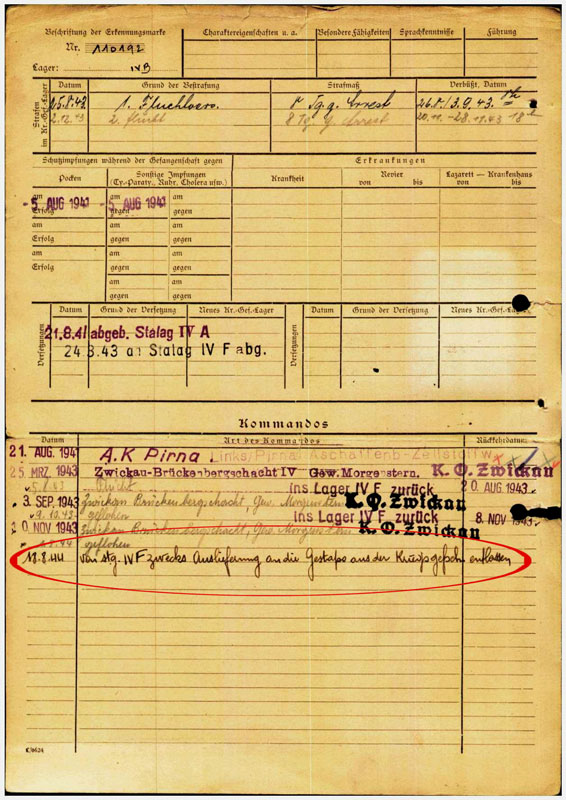 Beschriftung der Erkennungsmarke
Nr. 110192
Lager: IVB
Charaktereigenschaften u. a.
Besondere Fähigkeiten
Sprachkenntnisse
Führung
Strafen im Kr.-Gef.-Lager
Datum
Grund der Bestrafung
Strafmaß
Verbüßt, Datum
25.8.43
Tg. g. Arrest
26.8./3.9.43.
2.12.43
2. Flucht
8 Tg. g. Arrest
20.11.-28.11.43
Schutzimpfungen während der Gefangenschaft gegen
Erkrankungen
Pocken
Sonstige Impfungen
(Ty.-Paraty., Ruhr, Cholera usw.)
Krankheit
Revier
von bis
Lazarett — Krankenhaus
von bis
am
-5. AUG 1941
am
-5. AUG 1941
Erfolg
gegen
gegen
am
am
am
Erfolg
gegen
gegen
am
am
am
Erfolg
gegen
gegen
am
am
gegen
gegen
Versetzungen
Datum
Grund der Versetzung
Neues Kr.-Gef.-Lager
Versetzungen
Datum
Grund der Versetzung
Neues Kr.-Gef.-Lager
21.8.41 abgeb. Stalag IV A
24.3.43 an Stalag IV F abg.
Kommandos
Datum
Art des Kommandos
Rückkehrdatum:
21. AUG. 194
A.K Pirna
Links/Pirna Aschaffenb-Zellstoffw.
25. MRZ. 1943
Zwickau-Brückenbergschacht IV Gew. Morgenstern.
K. O. Zwickau
5.8.43
Flucht
ins Lager IV F. zurück
20 AUG. 1943
3. SEP. 1943
Zwickau Brückenbergschacht, Gew. Morgenstern
K. O. Zwickau
9.10.43
geflohen
ins Lager IV F. zurück
8. NOV. 1943
NOV. 1943
Zwickau Brückenbergschacht, Gew. Morgenstern
K. O. Zwickau
geflohen
8.44
von Stg. IV F zwecks Auslieferung an die Gestapo aus der Kriegsgefsch. entlassen